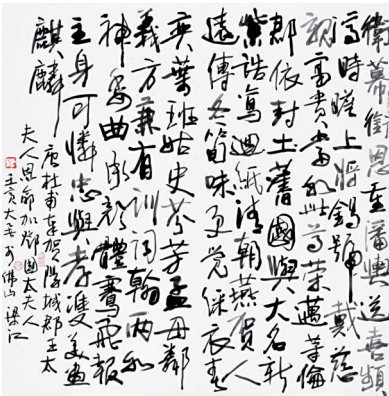 衛幕銜恩重潘輿送喜頻
濟時瞻上將錫號戴慈
親富貴當如此尊榮邁等倫
郡依封土舊國與大名新
紫誥鸞迴紙清朝燕賀人
遠傳冬筍味更覺綵衣春
奕葉班姑史芬芳孟母鄰
義方兼有訓詞翰兩如
神委曲承顏體騫飛報
主身可憐忠與孝雙美畫
麒麟
唐杜甫奉賀陽城郡王太
夫人恩命加鄧國太夫人
佛山 梁江